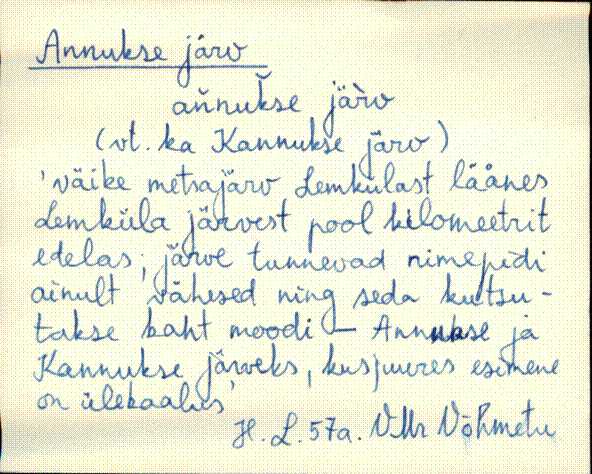 Annukse järv
an̆nukse jär̀v
(vt. ka Kannukse järv)
'väike metsajärv Lemkülast läänes
Lemküla järvest pool kilomeetrit
edelas; järve tunnevad nimepidi
ainult vähesed ning seda kutsu-
takse kaht moodi – Annukse ja
Kannukse järveks, kusjuures esimene
on ülekaalus'
H. L. 57a. VMr Võhmetu